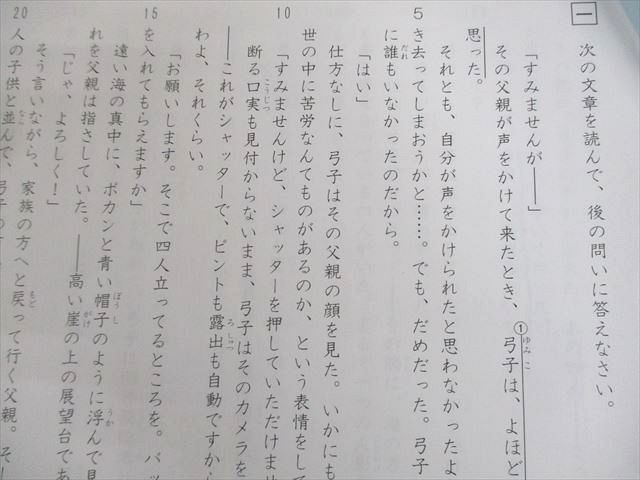 一
次の文章を読んで、後の問いに答えなさい。
「すみませんが――」
その父親が声をかけて来たとき、①弓子は、よほど
ゆみこ
思った。
それとも、自分が声をかけられたと思わなかったよ
5
き去ってしまおうかと……。でも、だめだった。弓子
に誰もいなかったのだから。
だれ
「はい」
仕方なしに、弓子はその父親の顔を見た。いかにも
世の中に苦労なんてものがあるのか、という表情をして
10
「すみませんけど、シャッターを押していただけませ
断る口実も見付からないまま、弓子はそのカメラを
こうじつ
――これがシャッターで、ピントも露出も自動ですから
ろしゅつ
わよ、それくらい。
「お願いします。そこで四人立ってるところを。バッ
15
を入れてもらえますか」
遠い海の真中に、ポカンと青い帽子のように浮んで見
ぼうし
うか
れを父親は指さしていた。――高い崖の上の展望台であ
がけ
「じゃ、よろしく！」
そう言いながら、家族の方へと戻って行く父親。そ
もど
20
人の子供と並んで、弓子の